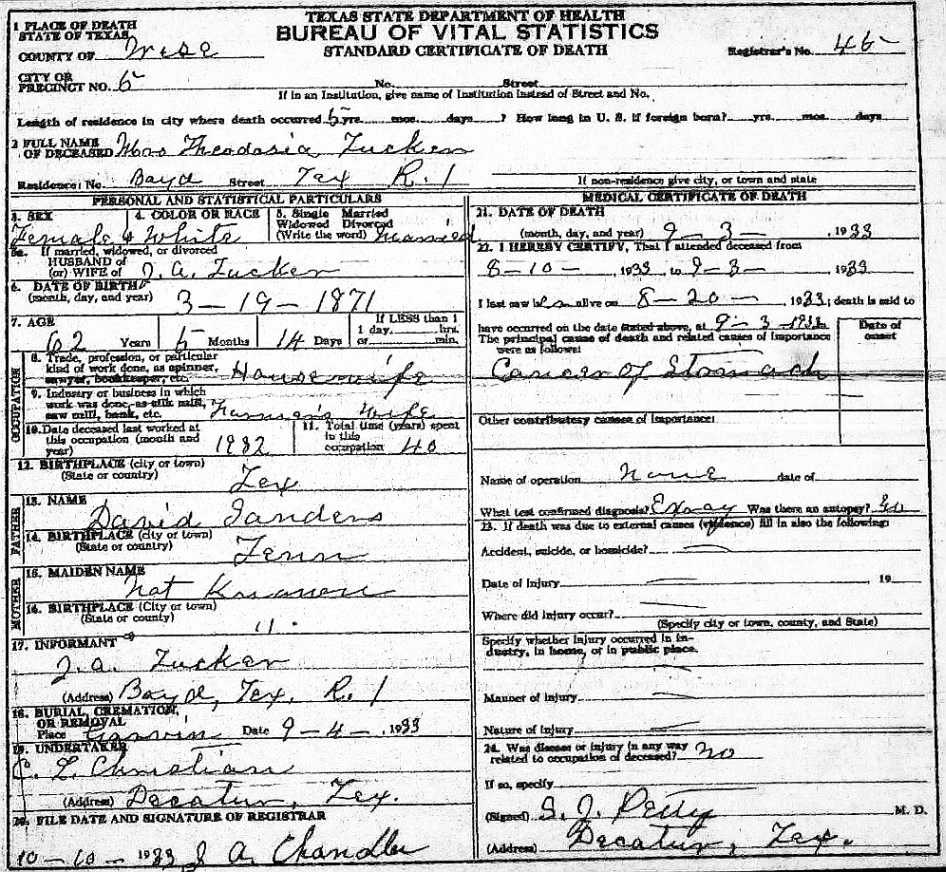 TEXAS STATE DEPARTMENT OF HEALTH
BUREAU OF VITAL STATISTICS
STANDARD CERTIFICATE OF DEATH
1 PLACE OF DEATH
STATE OF TEXAS
COUNTY OF Wise
Registrar's No. 46
CITY OR
PRECINCT NO. 5 No. Street
If in an Institution, give name of Institution instead of Street and No.
Length of residence in city where death occurred 5 yrs. mos. days ? How long in U. S. if foreign born? yrs. mos. days
2 FULL NAME
OF DECEASED Mrs Theodosia Tucker
Residence: No. Boyd Street Tex R. 1
If non-residence give city, or town and state
PERSONAL AND STATISTICAL PARTICULARS
3. SEX 4. COLOR OR RACE 5. Single Married
Widowed Divorced
(Write the word) Married
Female 4 White
5a. If married, widowed, or divorced
HUSBAND of
(or) WIFE of J. A. Tucker
6. DATE OF BIRTH
(month, day, and year) 3-19-1871
7. AGE If LESS than 1
62 Years 5 Months 14 Days 1 day, hrs.
or min.
OCCUPATION
8. Trade, profession, or particular
kind of work done, as spinner,
sawyer, bookkeeper, etc. Housewife
9. Industry or business in which
work was done, as silk mill,
saw mill, bank, etc. Farmer's Wife
10. Date deceased last worked at
this occupation (month and
year) 1932
11. Total time (years) spent
in this
occupation 40
12. BIRTHPLACE (city or town)
(State or country) Tex
FATHER
13. NAME
David Sanders
14. BIRTHPLACE (city or town)
(State or country) Tenn
MOTHER
15. MAIDEN NAME
Not Known
16. BIRTHPLACE (City or town)
(State or country) " .
17. INFORMANT
J. A. Tucker
(Address) Boyd, Tex. R. 1
18. BURIAL, CREMATION,
OR REMOVAL
Place Garvin Date 9-4-, 1933
19. UNDERTAKER
C. L. Christian
(Address) Decatur, Tex.
20. FILE DATE AND SIGNATURE OF REGISTRAR
10-10- 1933 J A. Chandler
MEDICAL CERTIFICATE OF DEATH
21. DATE OF DEATH
(month, day, and year) 9-3- , 1933
22. I HEREBY CERTIFY, That I attended deceased from
8-10- , 1933, to 9-3- 1933
I last saw alive on 8-20- , 1933; death is said to
have occurred on the date stated above, at 9-3-1933
The principal cause of death and related causes of importance
were as follows:
Date of
onset
Cancer of Stomach
Other contributory causes of importance:
Name of operation None date of
What test confirmed diagnosis? Exray Was there an autopsy?
23. If death was due to external causes (violence) fill in also the following:
Accident, suicide, or homicide?
Date of Injury 19
Where did injury occur?
(Specify city or town, county, and State)
Specify whether injury occurred in in-
dustry, in home, or in public place.
Manner of Injury
Nature of Injury
24. Was disease or injury in any way
related to occupation of deceased? no
If so, specify
(Signed) S. J. Petty M. D.
(Address) Decatur, Tex.